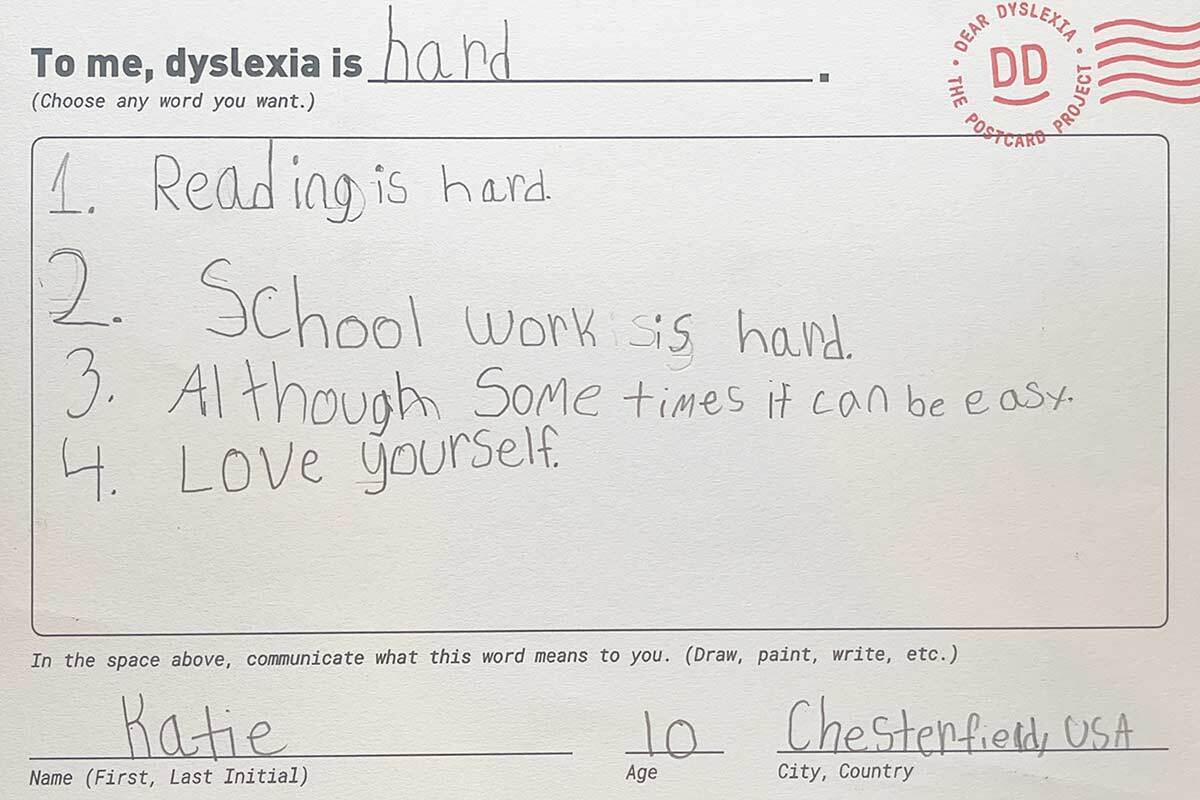 To me, dyslexia is hard.
(Choose any word you want.)
DEAR DYSLEXIA • THE POSTCARD PROJECT •
DD
1. Reading is hard.
2. School work is hard.
3. Although Some times it can be easy.
4. Love yourself.
In the space above, communicate what this word means to you. (Draw, paint, write, etc.)
Katie 10 Chesterfield, USA
Name (First, Last Initial) Age City, Country